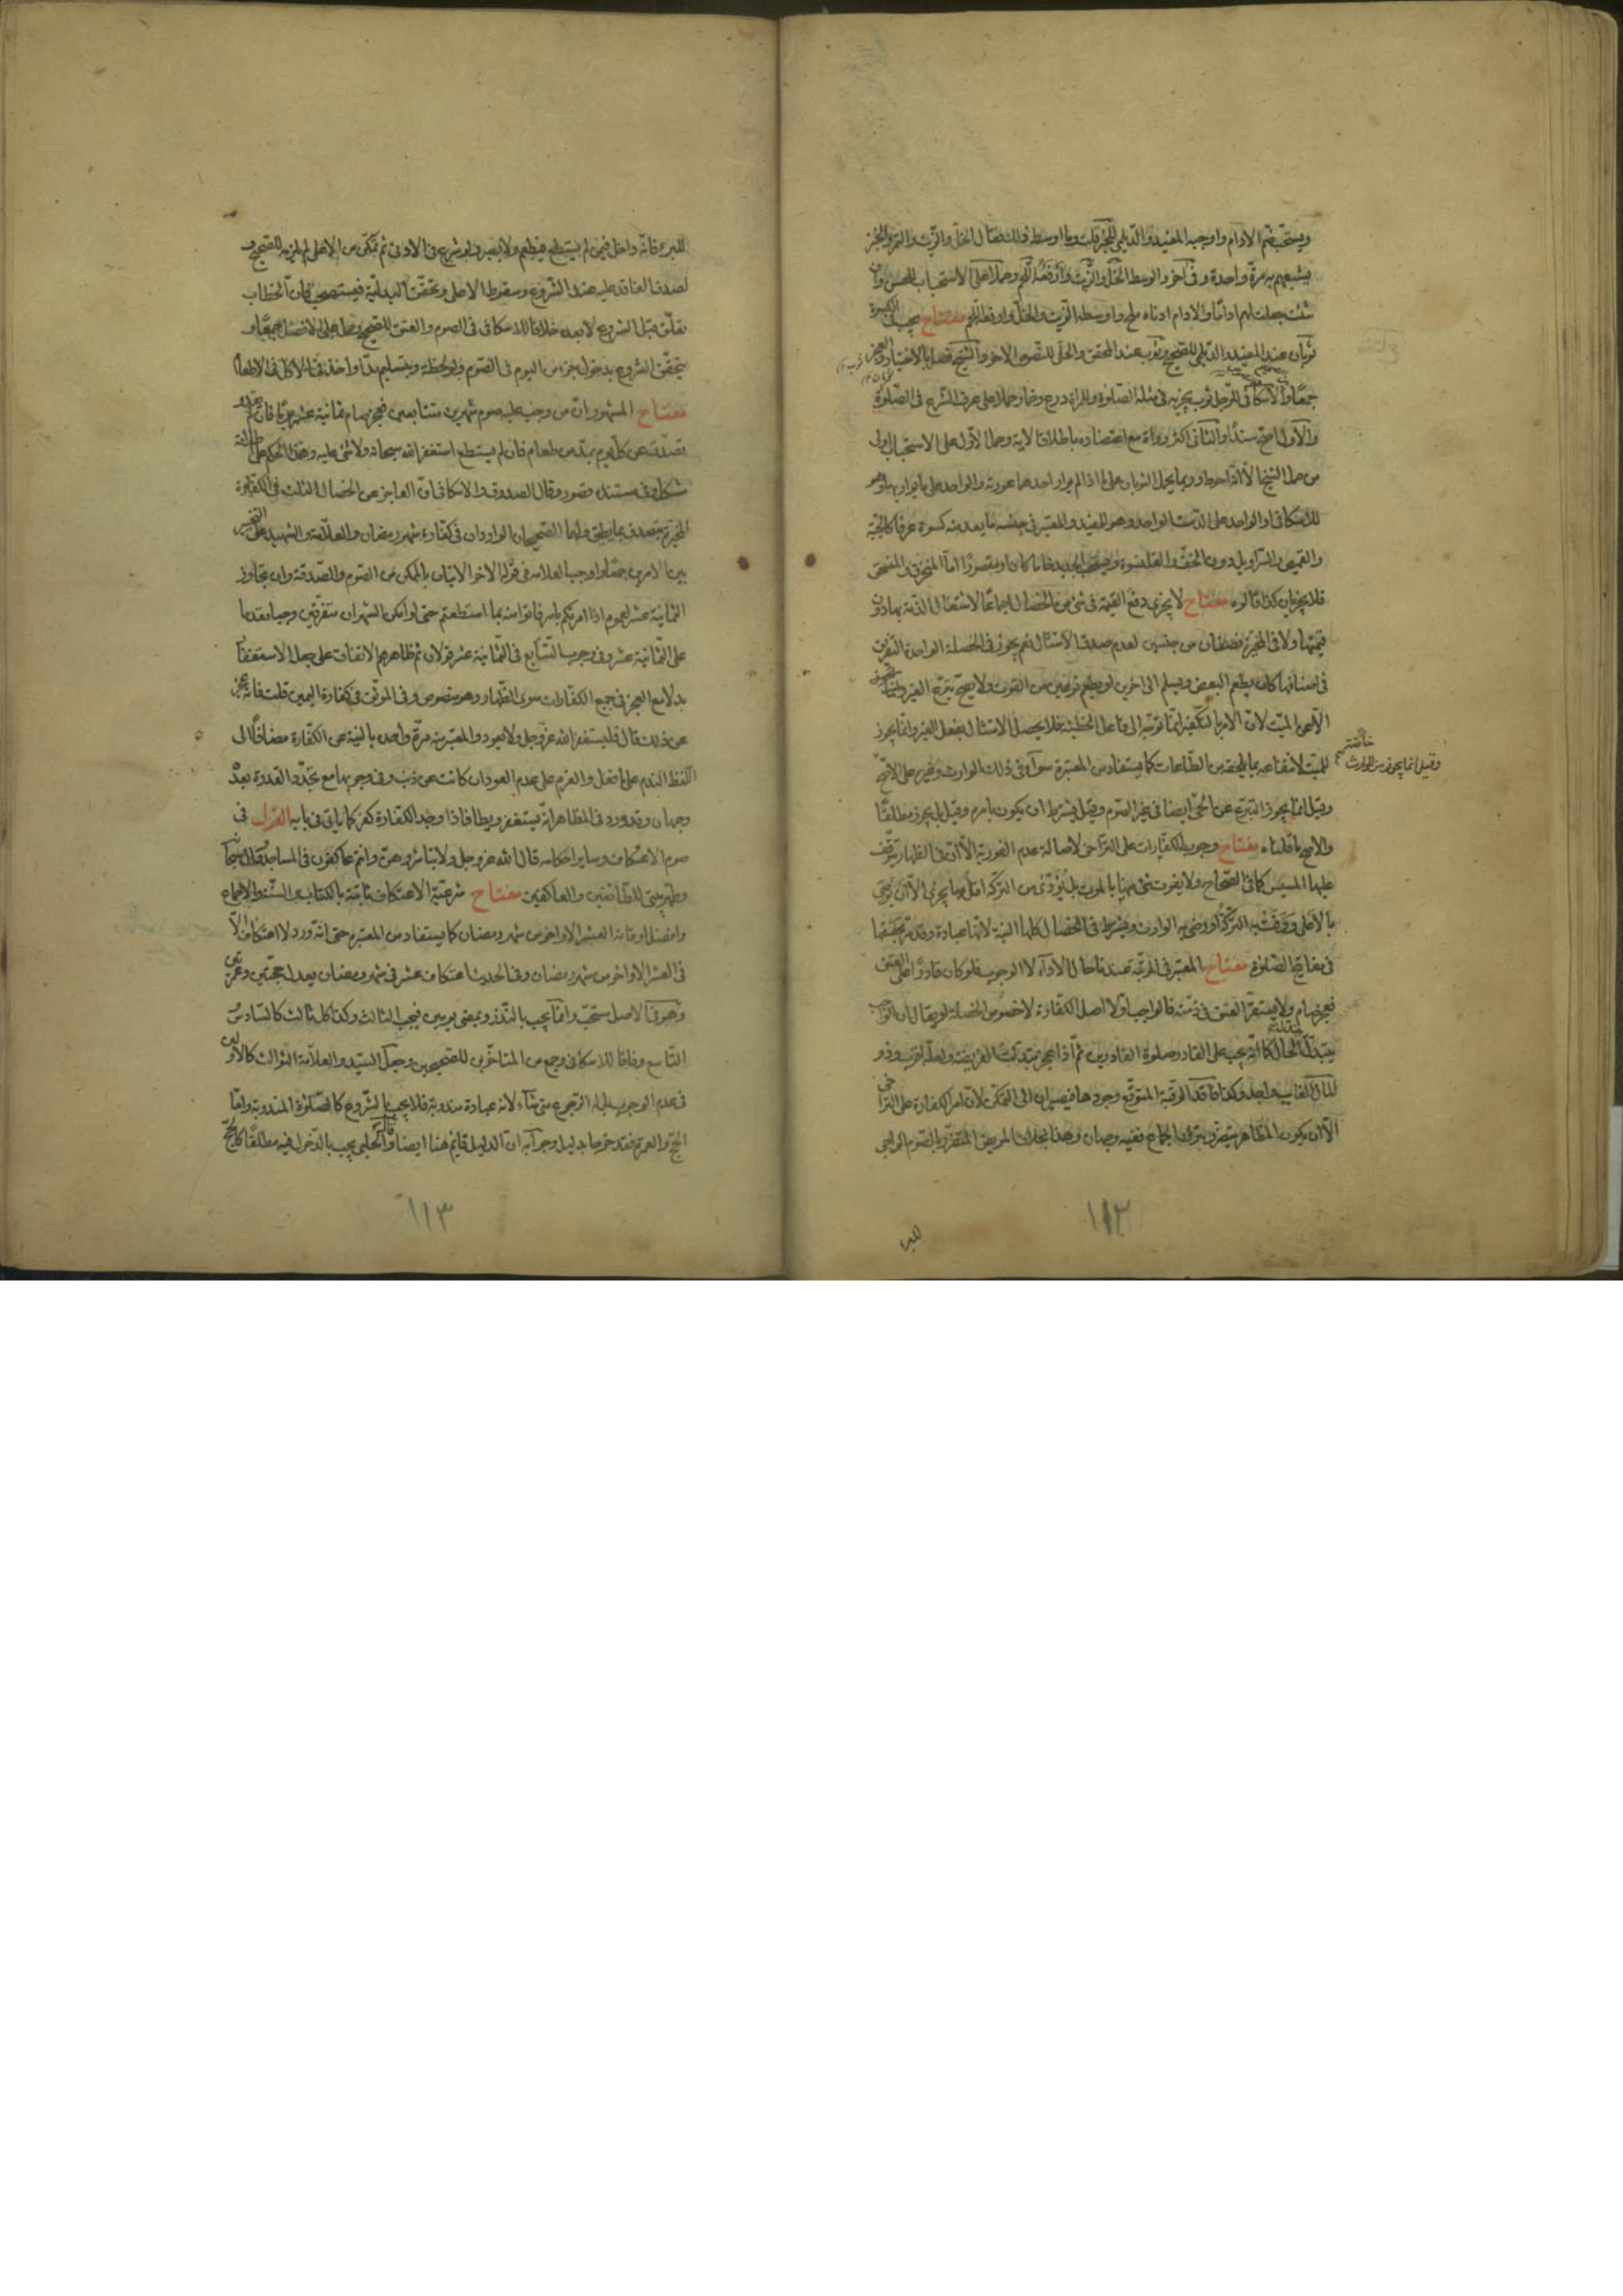 ويستحب ضم الادام واوجبه المفيد والديلمي للخبر قلت وما اوسط ذلك فقال الخل والزيت والتمر والخبز
يشبعهم به مرة واحدة وفى آخر والوسط الخل والزيت وارفعه اللحم وحملا على الاستحباب للحسن وان
شئت جعلت لهم ادما والادام ادناه ملح واوسطه الزيت والخل وارفعه اللحم مفتاح يجب فى الكسوة
ثوبان عند المفيد والديلمي للصحيح وثوب عند المحقق والحلي للنصوص الاخر والشيخ فصل بالاختيار والعجز
جمعا والاسكافي للرجل ثوب يجزيه فى مثله الصلوة وللمراة درع وخمار حملا على عرف الشرع فى الصلوة
والاول اصح سندا والثانى اكثر رواة مع اعتضاده باطلاق الاية وحمل الاول على الاستحباب اولى
من حمل الشيخ الا انه احوط وربما يحمل الثوبان على ما اذا لم يوار احدهما عورته والواحد على ما يواريها وهو
للاسكافى او الواحد على الثوب الواحد وهو للمفيد والمعتبر فى جنسه ما يعد منه كسوة عرفا كالجبة
والقميص والسراويل دون الخف والقلنسوة ويستحب الجديد خاما كان او مقصورا اما المنخرق والمنسحق
فلا يجزيان كذا قالوه مفتاح لا يجزى دفع القيمة فى شئ من الخصال اجماعا لاشتغال الذمة بها دون
قيمتها ولا فى المخيرة نصفان من جنسين لعدم صدق الامتثال نعم يجوز فى الخصلة الواحدة التفريق
فى اصنافها كان يطعم البعض ويسلم الى اخرين او يطعم نوعين من القوت ولا يصح تبرع الغير
الا عن الميت لان الامر بالتكفير انما توجه الى فاعل الخطيئة فلا يحصل الامتثال بفعل الغير وانما يجوز
للميت لانتفاعه بما يلحقه من الطاعات كما يستفاد من المعتبرة سواء فى ذلك الوارث وغيره على الاصح
وقيل انما يجوز من الوارث خاصة
وقيل انما يجوز التبرع عن الحي ايضا فى غير الصوم وقيل بشرط ان يكون بامره وقيل بل يجوز مطلقا
والاصح ما قلناه مفتاح وجوب الكفارات على التراخى لاصالة عدم الفورية الا ان فى الظهار يتوقف
عليها المسيس كما فى الصحاح ولا يفوت شئ منها بالموت بل يؤدى من التركة اقل ما يجزى الا ان يوصى
بالاعلى ووفت به التركة او رضى به الوارث ويشترط فى الخصال كلها النية لانها عبادة وقد مر تحقيقها
فى مفاتيح الصلوة مفتاح المعتبر فى المرتبة عندنا حال الاداء لا الوجوب فلو كان قادرا على العتق
فعجز صام ولا يستقر العتق فى ذمته فالواجب اولا اصل الكفارة لا خصوص الخصلة
يعتبد لنا الحال كما انه يجب على القادر صلوة القادرين ثم اذا عجز تبدلت الفريضة وذو
المال الغائب واجد وكذا فاقد الرقبة المتوقع وجودها فيصبران الى التمكن لان امر الكفارة على التراخى
الا ان يكون المظاهر يتضرر بترك الجماع ففيه وجهان وهذا بخلاف المريض المتضرر بالصوم الراجى
١١٣
للبرء
للبرء فانه داخل فيمن لم يستطع فيطعم ولا يصبر ولو شرع فى الادنى ثم تمكن من الاعلى لم يلزمه للصحيح و
لصدق الفاقد عليه عند الشروع وسقوط الاعلى وتحقق البدلية فيستصحب كان الخطاب
تعلق قبل الشروع لا بعده خلافا للاسكافى فى الصوم والعتق للصحيح وحمل على الافضل جمعا و
يتحقق الشروع بدخول جزء من اليوم فى الصوم ولو لحظة وبتسليم مد او اخذ فى الاكل فى الاطعام
مفتاح المشهور ان من وجب عليه صوم شهرين متتابعين فعجز صام ثمانية عشر يوما فان لم يقدر
تصدق عن كل يوم بمد من طعام فان لم يستطع استغفر الله سبحانه ولا شئ عليه وهذا الحكم على اطلاقه
مشكل وفى مستنده قصور وقال الصدوق والاسكافى ان العاجز عن الخصال الثلث فى الكفارة
المخيرة يتصدق بما يطيق ولهما الصحيحان الواردان فى كفارة شهر رمضان والعلامة والشهيد على التخيير
بين الامرين جمعا واوجب العلامة فى قوله الاخر الاتيان بالممكن من الصوم والصدقة وان تجاوز
الثمانية عشر لعموم اذا امرتكم بامر فاتوا منه بما استطعتم حتى لو امكن الشهران متفرقين وجب مقدما
على الثمانية عشر وفى وجوب التتابع فى الثمانية عشر قولان ثم ظاهرهم الاتفاق على جعل الاستغفار
بدلا مع العجز فى جميع الكفارات سوى الظهار وهو منصوص وفى الموثق فى كفارة اليمين قلت فانه عجز
عن ذلك قال فليستغفر الله عز وجل ولا يعود والمعتبر منه مرة واحدة بالنية عن الكفارة مضافا الى
اللفظ الندم على ما فعل والعزم على عدم العود ان كانت عن ذنب وفى وجوبها مع تجدد القدرة بعده
وجهان وقد ورد فى المظاهر انه يستغفر ويطأ فاذا وجد الكفارة كفر كما ياتى فى بابه القول فى
صوم الاعتكاف وساير احكامه قال الله عز وجل ولا تباشروهن وانتم عاكفون فى المساجد وقال سبحانه
وطهر بيتى للطائفين والعاكفين مفتاح شرعية الاعتكاف ثابتة بالكتاب والسنة والاجماع
وافضل اوقاته العشر الاواخر من شهر رمضان كما يستفاد من المعتبرة حتى انه ورد لا اعتكاف الا
فى العشر الاواخر من شهر رمضان وفى الحديث اعتكاف عشر فى شهر رمضان يعدل حجتين وعمرتين
وهو فى الاصل مستحب وانما يجب بالنذر وبمضى يومين فيجب الثالث وكذا كل ثالث كالسادس
التاسع وفاقا للاسكافى وجمع من المتاخرين للصحيحين وجعل السيد والعلامة الثوالث كالاولى
فى عدم الوجوب بل له الرجوع متى شاء لانه عبادة مندوبة فلا يجب بالشروع كالصلوة المندوبة واما
الحج والعمرة فقد خرجا بدليل وجوابه ان الدليل قايم هنا ايضا وقال الحلبى يجب بالدخول فيه مطلقا كالحج
١١٣